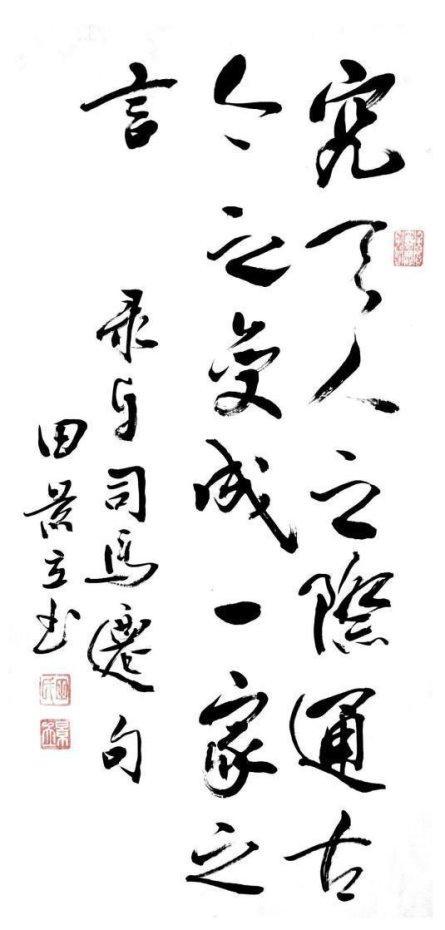 究天人之際通古
今之变成一家之
言
录自司馬遷句
田景立书